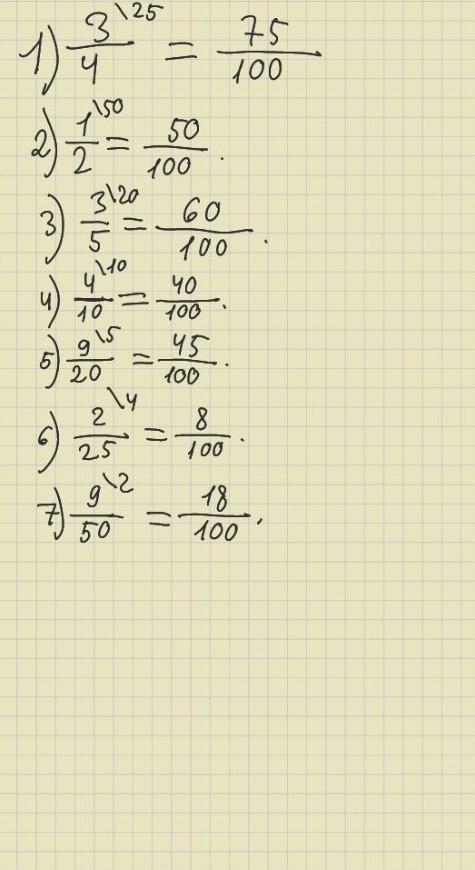 1) 3\25/4 = 75/100
2) 1\50/2 = 50/100.
3) 3\20/5 = 60/100.
4) 4\10/10 = 40/100.
5) 9\5/20 = 45/100.
6) 2\4/25 = 8/100.
7) 9\2/50 = 18/100.